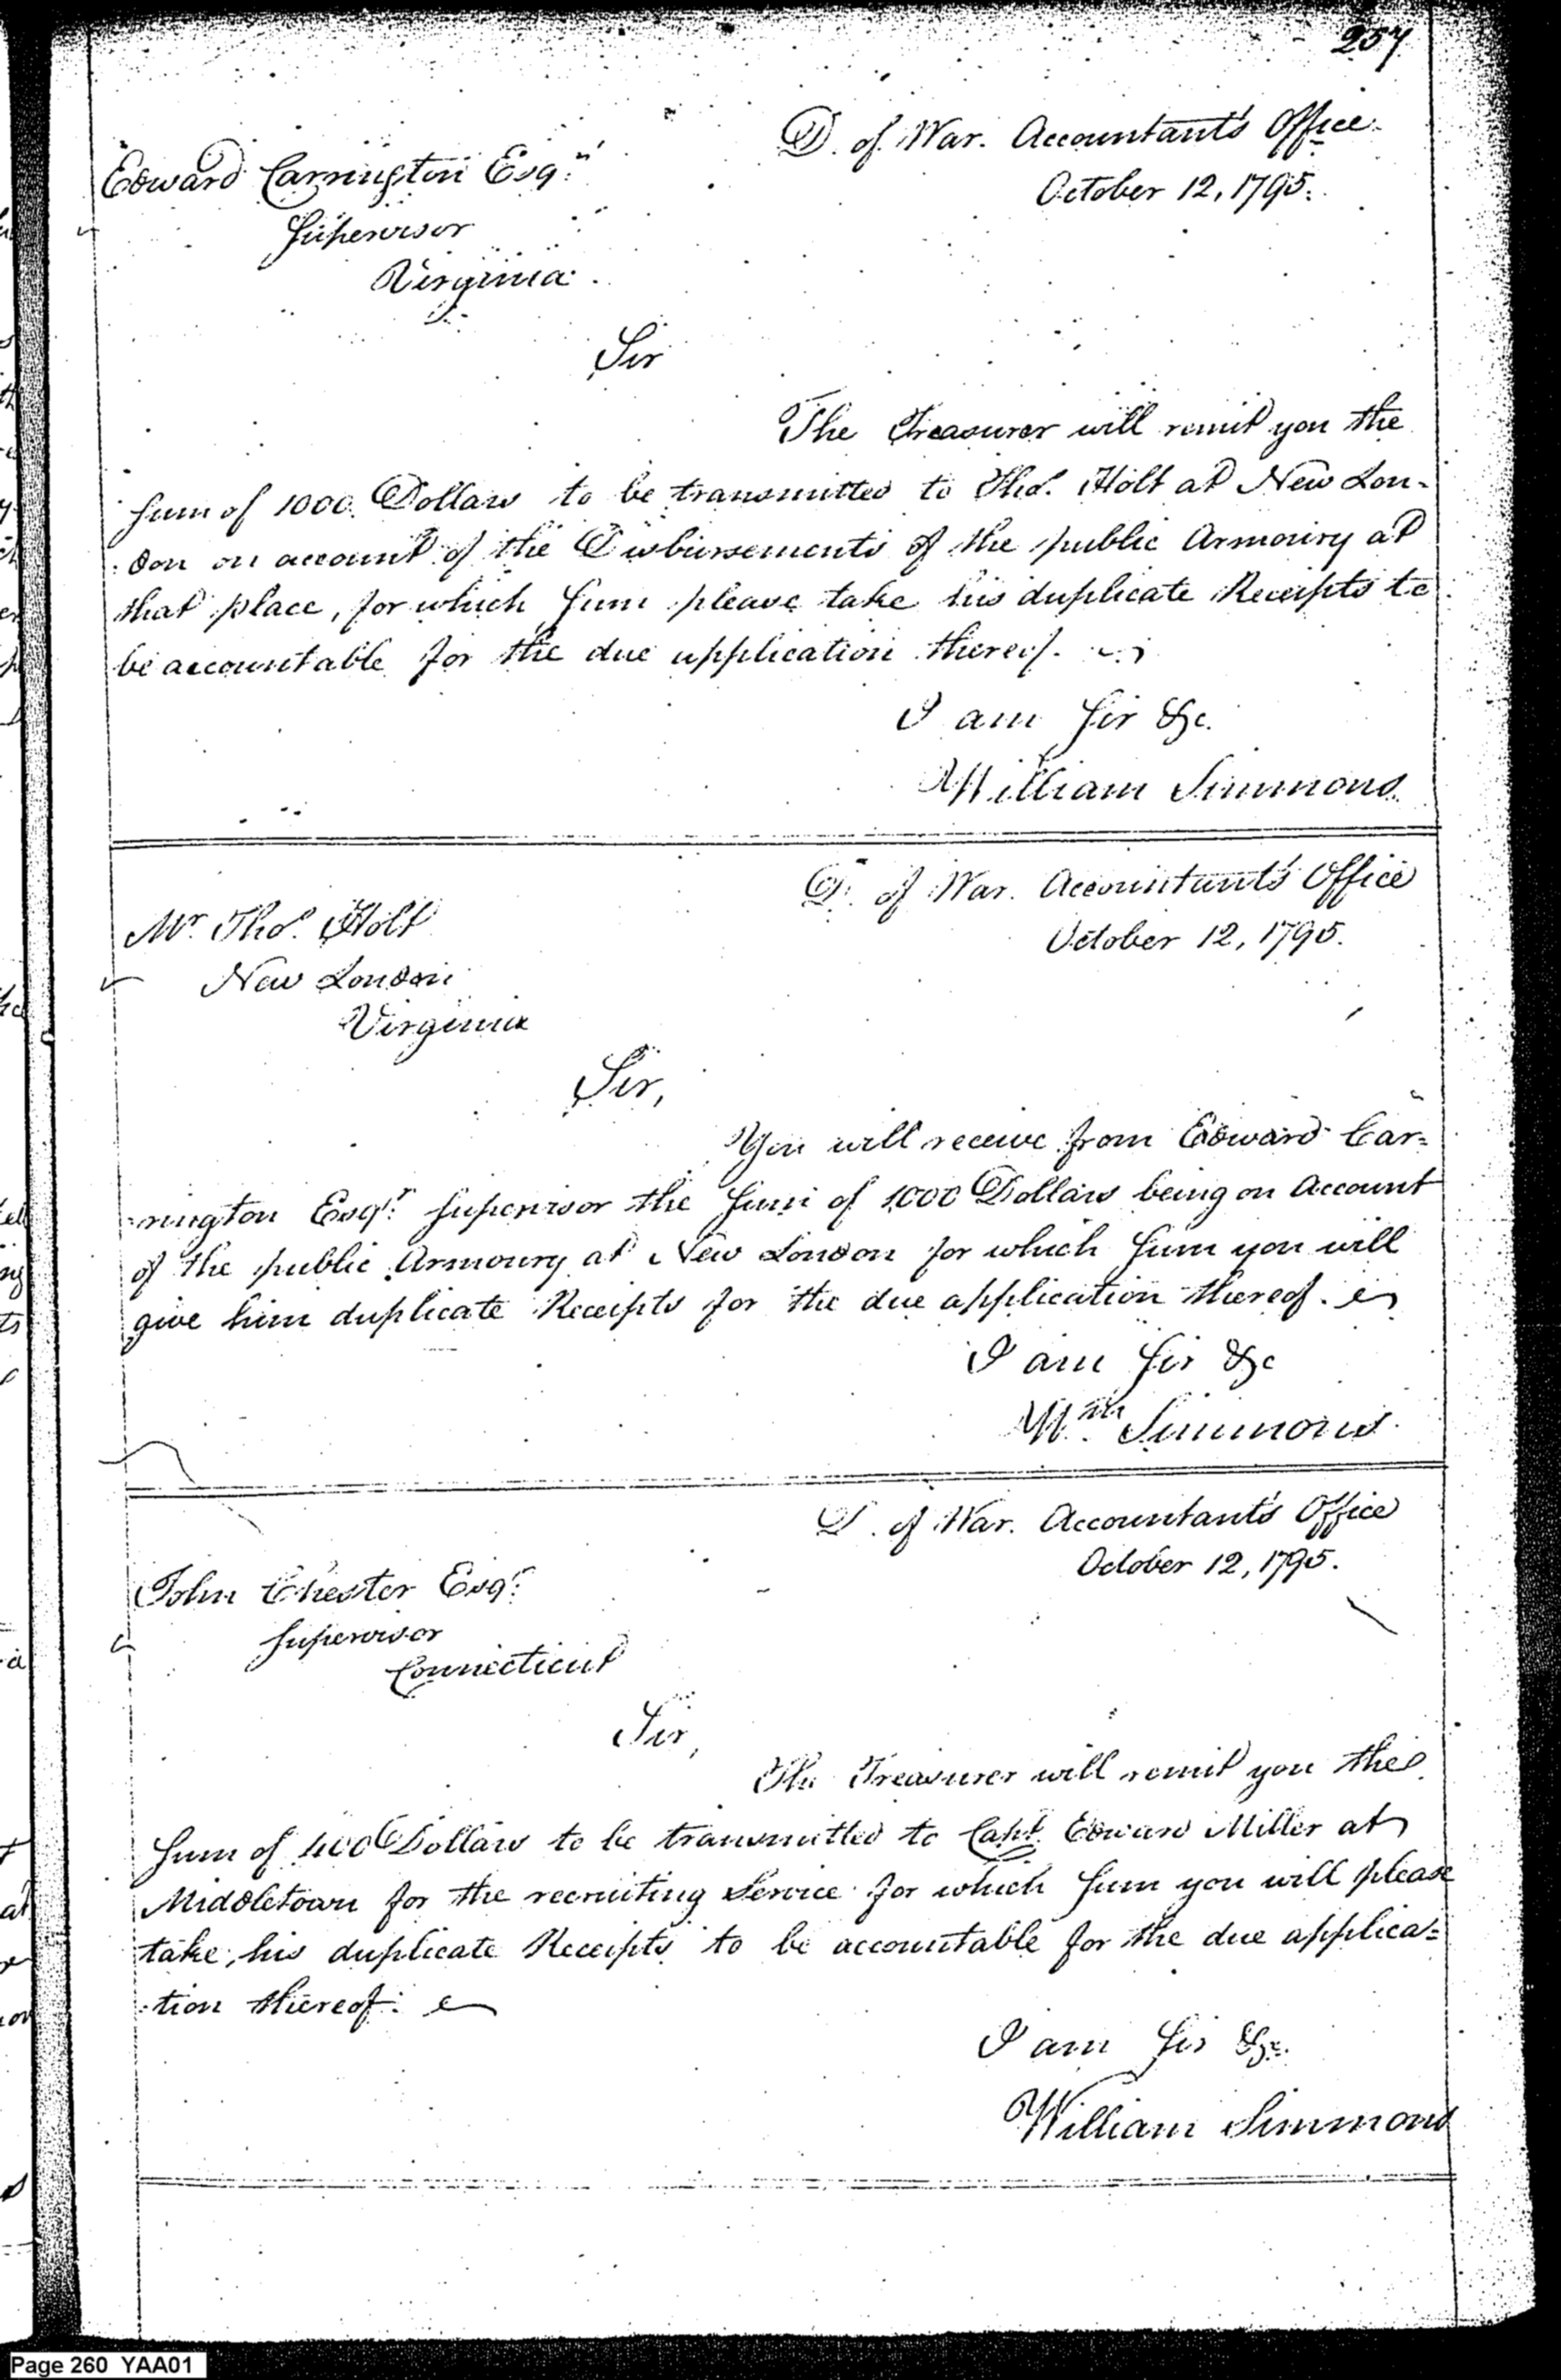 257
D. of War. Accountant's Office
October 12, 1795.
Edward Carrington Esqr.
Supervisor
Virginia.
Sir
The Treasurer will remit you the
Sum of 1000 Dollars to be transmitted to Thos. Holt at New Lon-
don on account of the Disbursements of the public Armoury at
that place, for which Sum please take his duplicate Receipts to
be accountable for the due application thereof.
I am Sir &c.
William Simmons
D. of War. Accountant's Office
October 12, 1795.
Mr. Thos. Holt
New London
Virginia
Sir,
You will receive from Edward Car=
rington Esqr. Supervisor the Sum of 1000 Dollars being on Account
of the public Armoury at New London for which Sum you will
give him duplicate Receipts for the due application thereof.
I am Sir &c
Wm. Simmons
D. of War. Accountant's Office
October 12, 1795.
John Chester Esqr.
Supervisor
Connecticut
Sir,
The Treasurer will remit you the
Sum of 400 Dollars to be transmitted to Capt. Edward Miller at
Middletown for the recruiting Service for which Sum you will please
take his duplicate Receipts to be accountable for the due applica=
tion thereof.
I am Sir &c.
William Simmons
Page 260 YAA01